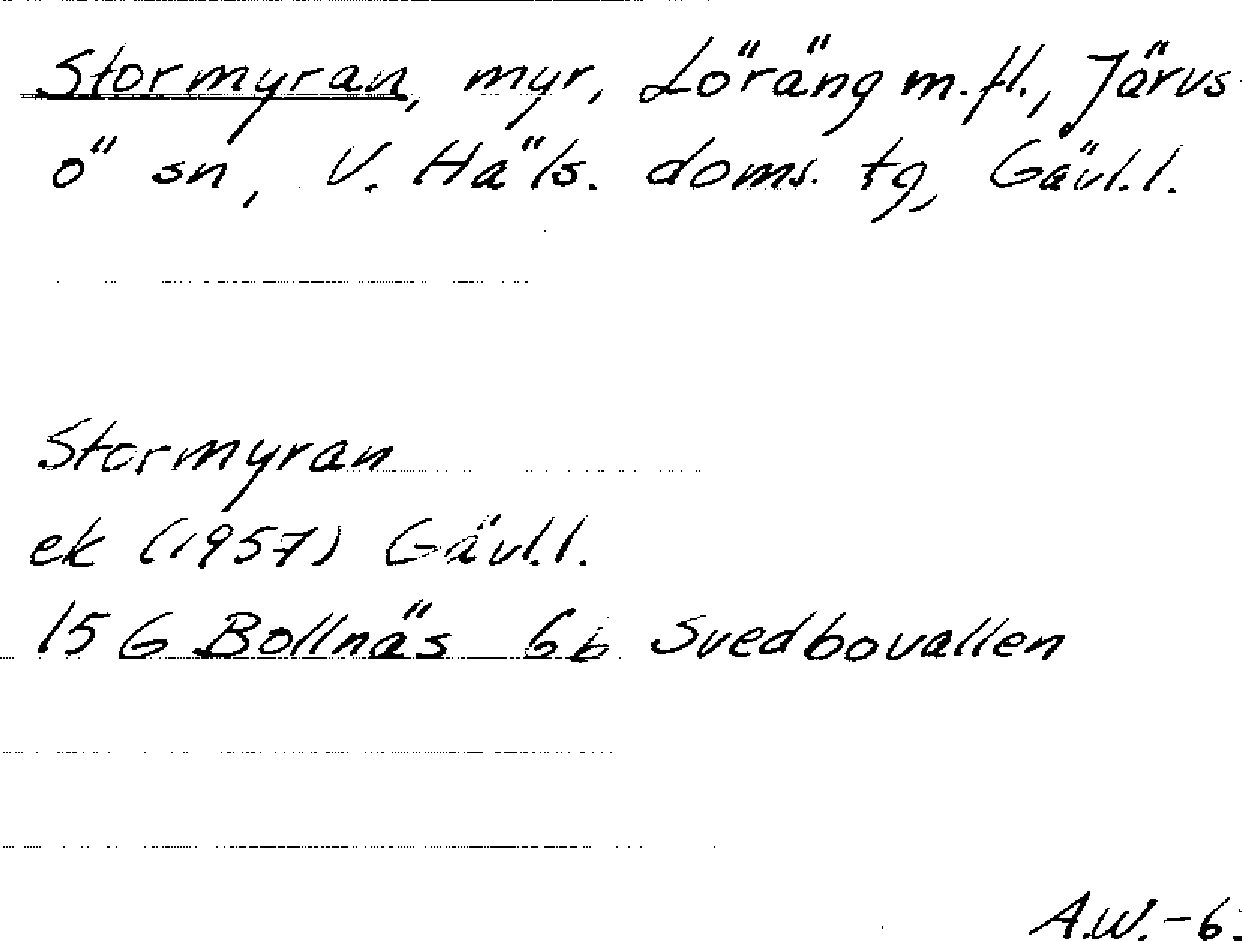 Stormyran, myr, Löräng m.fl., Järvs-
ö sn, V. Häls. doms. tg, Gävl.l.
Stormyran
ek (1957) Gävl.l.
15 G Bollnäs 6b Svedbovallen
A.W.-6